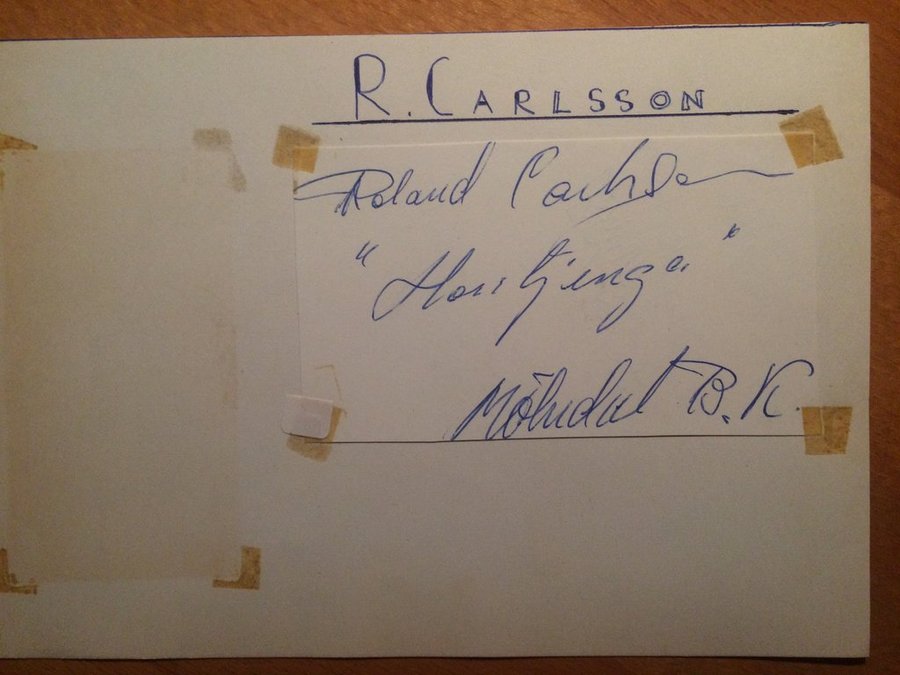 R. CARLSSON
Roland Carlsson
Mölndal B.K.